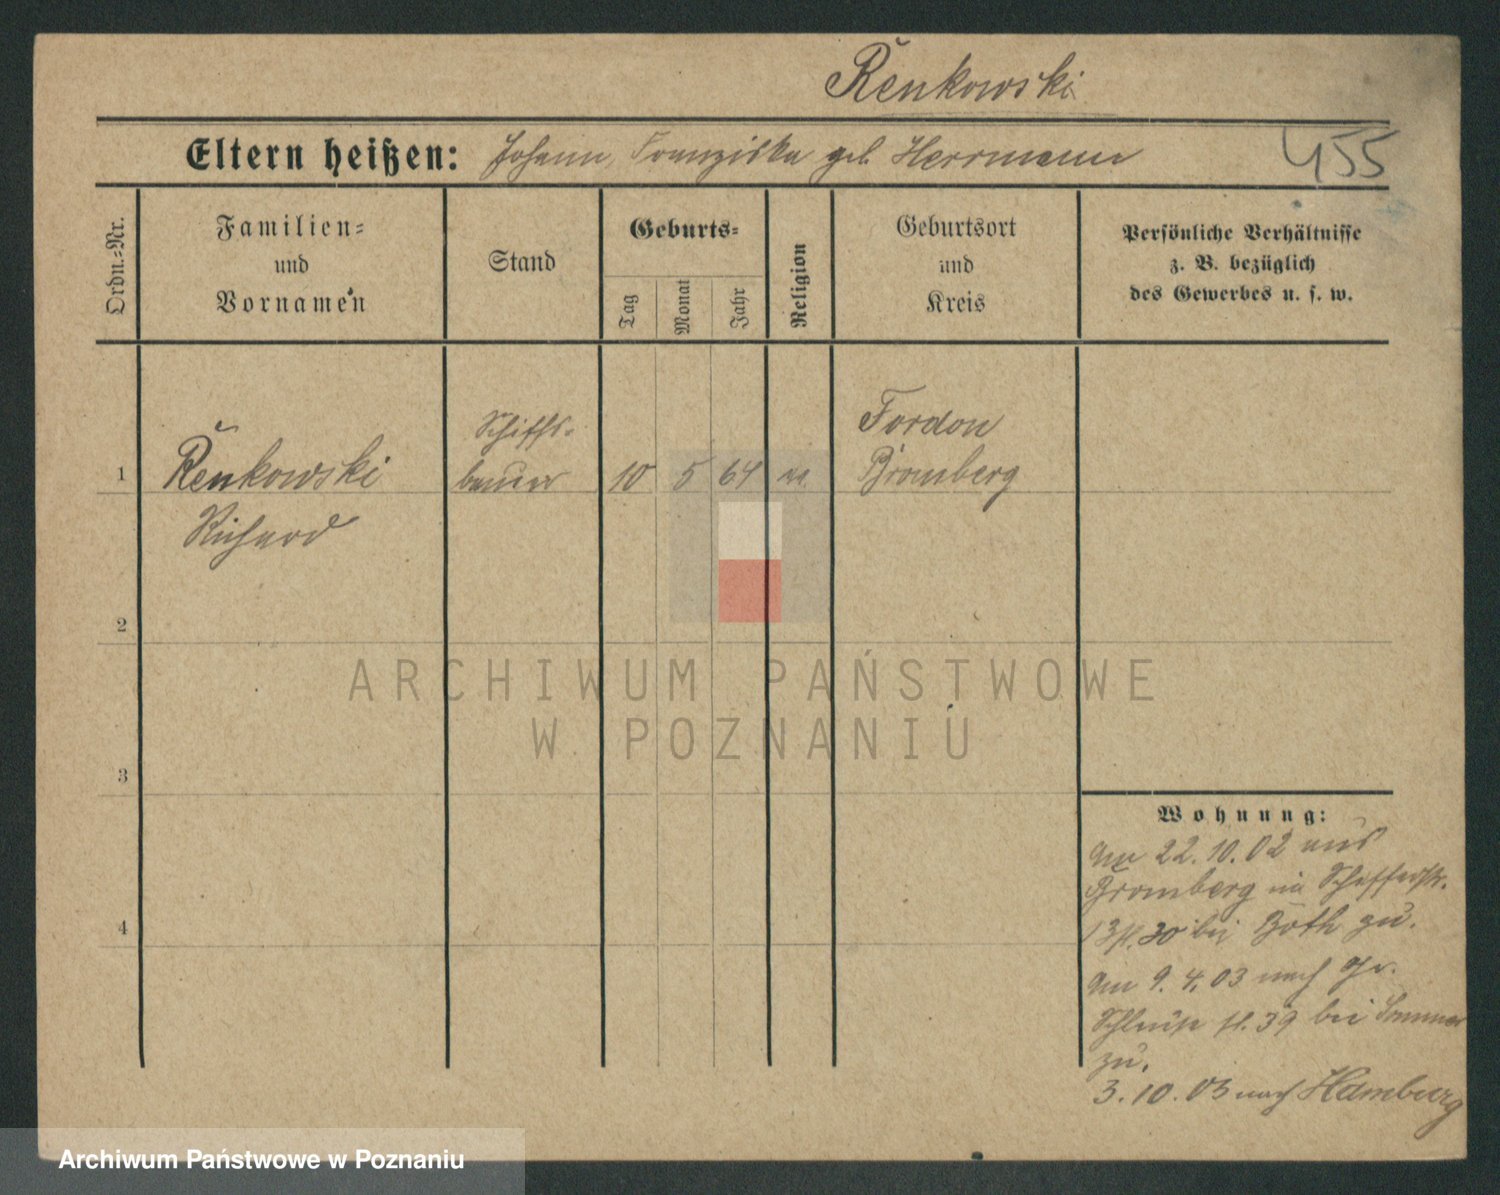 Řenkowski
Eltern heißen: Johann, Franziska geb. Herrmann
455
Ordn.=Nr.
Familien=
und
Vornamen
Stand
Geburts=
Tag
Monat
Jahr
Religion
Geburtsort
und
Kreis
Persönliche Verhältnisse
z. B. bezüglich
des Gewerbes u. s. w.
1
Řenkowski
Richard
Schiffs-
bauer
10
5
64
Fordon
Bromberg
2
3
4
Wohnung:
Am 22.10.02 aus
Bromberg in
30 bei Both zu.
Am 9.4.03 nach Gr.
39 bei Sommer
zu.
3.10.03 nach Hamburg
ARCHIWUM PAŃSTWOWE
W POZNANIU
Archiwum Państwowe w Poznaniu